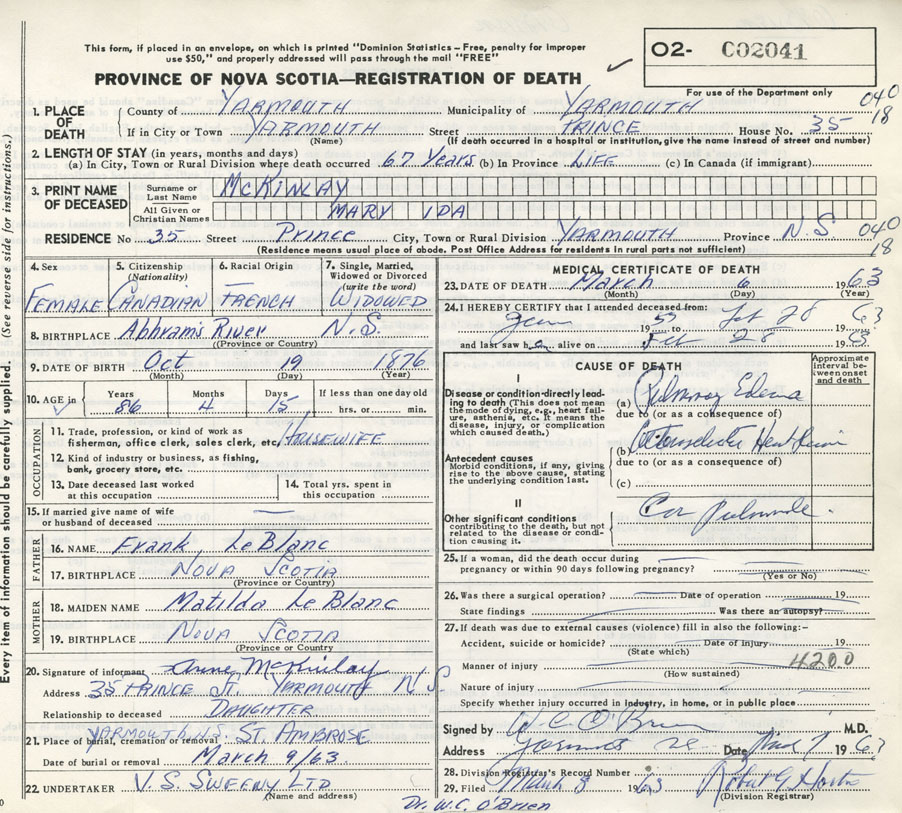 This form, if placed in an envelope, on which is printed "Dominion Statistics – Free, penalty for improper
use $50," and properly addressed will pass through the mail "FREE"
PROVINCE OF NOVA SCOTIA—REGISTRATION OF DEATH
O2- C02041
For use of the Department only
040
18
1. PLACE OF DEATH
County of YARMOUTH Municipality of YARMOUTH
If in City or Town YARMOUTH Street PRINCE House No. 35
(Name) (If death occurred in a hospital or institution, give the name instead of street and number)
2. LENGTH OF STAY (in years, months and days)
(a) In City, Town or Rural Division where death occurred 67 Years (b) In Province LIFE (c) In Canada (if immigrant)
3. PRINT NAME OF DECEASED
Surname or Last Name McKINLAY
All Given or Christian Names MARY IDA
RESIDENCE No. 35 Street Prince City, Town or Rural Division YARMOUTH Province N.S. 040
18
(Residence means usual place of abode. Post Office Address for residents in rural parts not sufficient)
4. Sex FEMALE
5. Citizenship (Nationality) CANADIAN
6. Racial Origin FRENCH
7. Single, Married, Widowed or Divorced (write the word) WIDOWED
8. BIRTHPLACE Abhram's River N.S.
(Province or Country)
9. DATE OF BIRTH Oct 19 1876
(Month) (Day) (Year)
10. AGE in Years 86 Months 4 Days 15 If less than one day old hrs. or min.
OCCUPATION
11. Trade, profession, or kind of work as fisherman, office clerk, sales clerk, etc. HOUSEWIFE
12. Kind of industry or business, as fishing, bank, grocery store, etc.
13. Date deceased last worked at this occupation
14. Total yrs. spent in this occupation
15. If married give name of wife or husband of deceased —
FATHER
16. NAME Frank LeBlanc
17. BIRTHPLACE NOVA SCOTIA
(Province or Country)
MOTHER
18. MAIDEN NAME Matilda LeBlanc
19. BIRTHPLACE NOVA SCOTIA
(Province or Country
20. Signature of informant Anne McKinlay
Address 35 PRINCE St. YARMOUTH N.S.
Relationship to deceased DAUGHTER
21. Place of burial, cremation or removal YARMOUTH N.S. ST. AMBROSE
Date of burial or removal March 9/63.
22. UNDERTAKER V.S. SWEENY LTD
(Name and address)
MEDICAL CERTIFICATE OF DEATH
23. DATE OF DEATH March 6 1963
(Month) (Day) (Year)
24. I HEREBY CERTIFY that I attended deceased from:
19 to Feb 28 63
and last saw h alive on Feb 28 1963
CAUSE OF DEATH
Approximate interval between onset and death
I
Disease or condition directly leading to death (This does not mean the mode of dying, e.g., heart failure, asthenia, etc. It means the disease, injury, or complication which caused death.)
(a) Pulmonary Edema
due to (or as a consequence of)
Antecedent causes
Morbid conditions, if any, giving rise to the above cause, stating the underlying condition last.
(b) Heart
due to (or as a consequence of)
(c)
II
Other significant conditions
contributing to the death, but not related to the disease or condition causing it.
Cor Pulmonale.
25. If a woman, did the death occur during pregnancy or within 90 days following pregnancy?
(Yes or No)
26. Was there a surgical operation? Date of operation 19
State findings Was there an autopsy?
27. If death was due to external causes (violence) fill in also the following:-
Accident, suicide or homicide? Date of injury 19
(State which)
Manner of injury 4200
(How sustained)
Nature of injury
Specify whether injury occurred in industry, in home, or in public place
Signed by W C O'Brien M.D.
Address Yarmouth Date 7 1963
28. Division Registrar's Record Number
29. Filed March 8 1963 Robert G
(Division Registrar)
Dr. W.C. O'BRIEN
Every item of information should be carefully supplied. (See reverse side for instructions.)